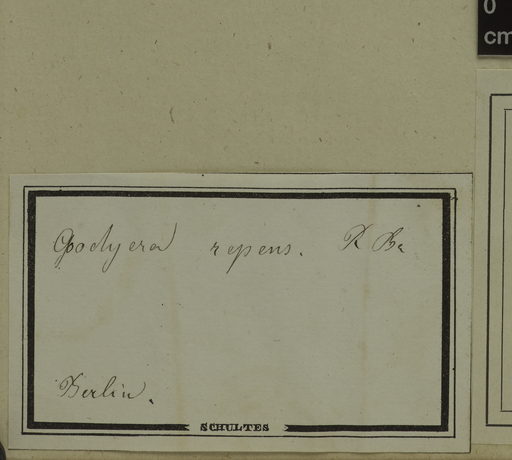 0
cm
Goodyera repens. R Br
Berlin.
SCHULTES